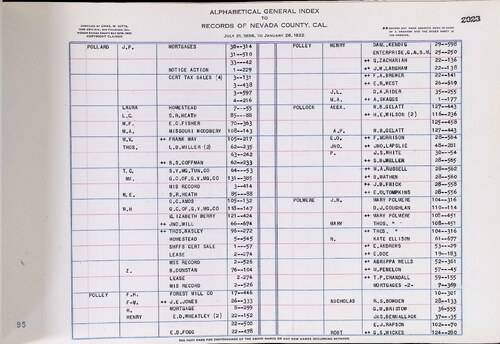 ALPHABETICAL GENERAL INDEX
TO
RECORDS OF NEVADA COUNTY, CAL.
JULY 21, 1856, TO JANUARY 28, 1922
2023
COPYRIGHT CLAIMED
POLLARD J.P. MORTGAGES 30--314
31--510
33--42
NOTICE ACTION 1--229
CERT TAX SALES (4) 3--131
3--438
3--597
4--216
LAURA HOMESTEAD 7--55
L.C. S.R.HEATH 85--88
M.F. E.C.FISHER 70--363
M.A. MISSOURI MCGOWERY 108--143
W.V. ++ FRANK MAY 105--217
THOS. L.B.MILLER (2) 62--235
63--242
++ B.S.COFFMAN 62--233
T.C. S.V.MG.TUN.CO 64--53
WM. G.C.OF.G.V.MG.CO 131--385
MIS RECORD 3--414
W.E. S.R.HEATH 85--88
G.C.AMOS 105--132
W.H G.C.OF.G.V.MG.CO 118--147
ELIZABETH BERRY 121--424
++ JNO.WILL 46--674
++ THOS.RAGLEY 96--272
HOMESTEAD 5--545
SHFFS CERT SALE 1--57
LEASE 2--274
MIS RECORD 2--526
Z. W.DUNSTAN 76--104
LEASE 2--274
MIS RECORD 2--526
POLLEY F.H. FOREST HILL CO 17--446
F.W. ++ J.E.JONES 26--333
H. MORTGAGE 8--299
HENRY E.D.WHEATLEY (2) 22--152
22--500
E.D.FOGG 22--438
POLLEY HENRY DANL.KENDIG 29--598
ENTERPRISE.G.&S.M. 25--250
++ G.ZACHARIAH 22--136
++ J.W.LANGHAM 22--138
++ F.A.BREWER 22--141
++ E.R.WEST 26--519
J.L. D.A.RIDER 35--255
M.A. A.SKAGGS 1--177
POLLOCK ALEX. W.B.GELATT 127--443
++ H.E.WILSON (2) 116--236
125--458
A.P. W.B.GELATT 127--443
E.D. ++ F.MORRISON 28--564
JNO. ++ JNO.LAPSLIE 48--281
P. J.S.WHITE 30--54
++ S.D.WELLER 28--565
++ W.A.RUSSELL 28--562
++ B.WATHEN 28--560
++ J.B.FRICK 28--558
++ E.O.TOMPKINS 28--556
POLMERE J.H. MARY POLMERE 104--316
D.J.COUGHLAN 110--114
++ MARY POLMERE 108--451
MARY THOS. " 108--451
++ THOS. " 104--316
N. KATE ELLICH 61--577
++ E.ANDREWS 53--29
++ E.DOE 19--183
++ AGRIPPA WELLS 52--361
++ W.PENELON 57--45
++ T.P.CRANDALL 59--155
MORTGAGES -2- 7--369
10--301
NICHOLAS R.S.BOWDEN 28--133
G.W.BRISTOL 36--555
JNS.BENALLACK 37--35
E.J.RAPSON 102--70
ROST ++ G.S.HICKES 124--280
95